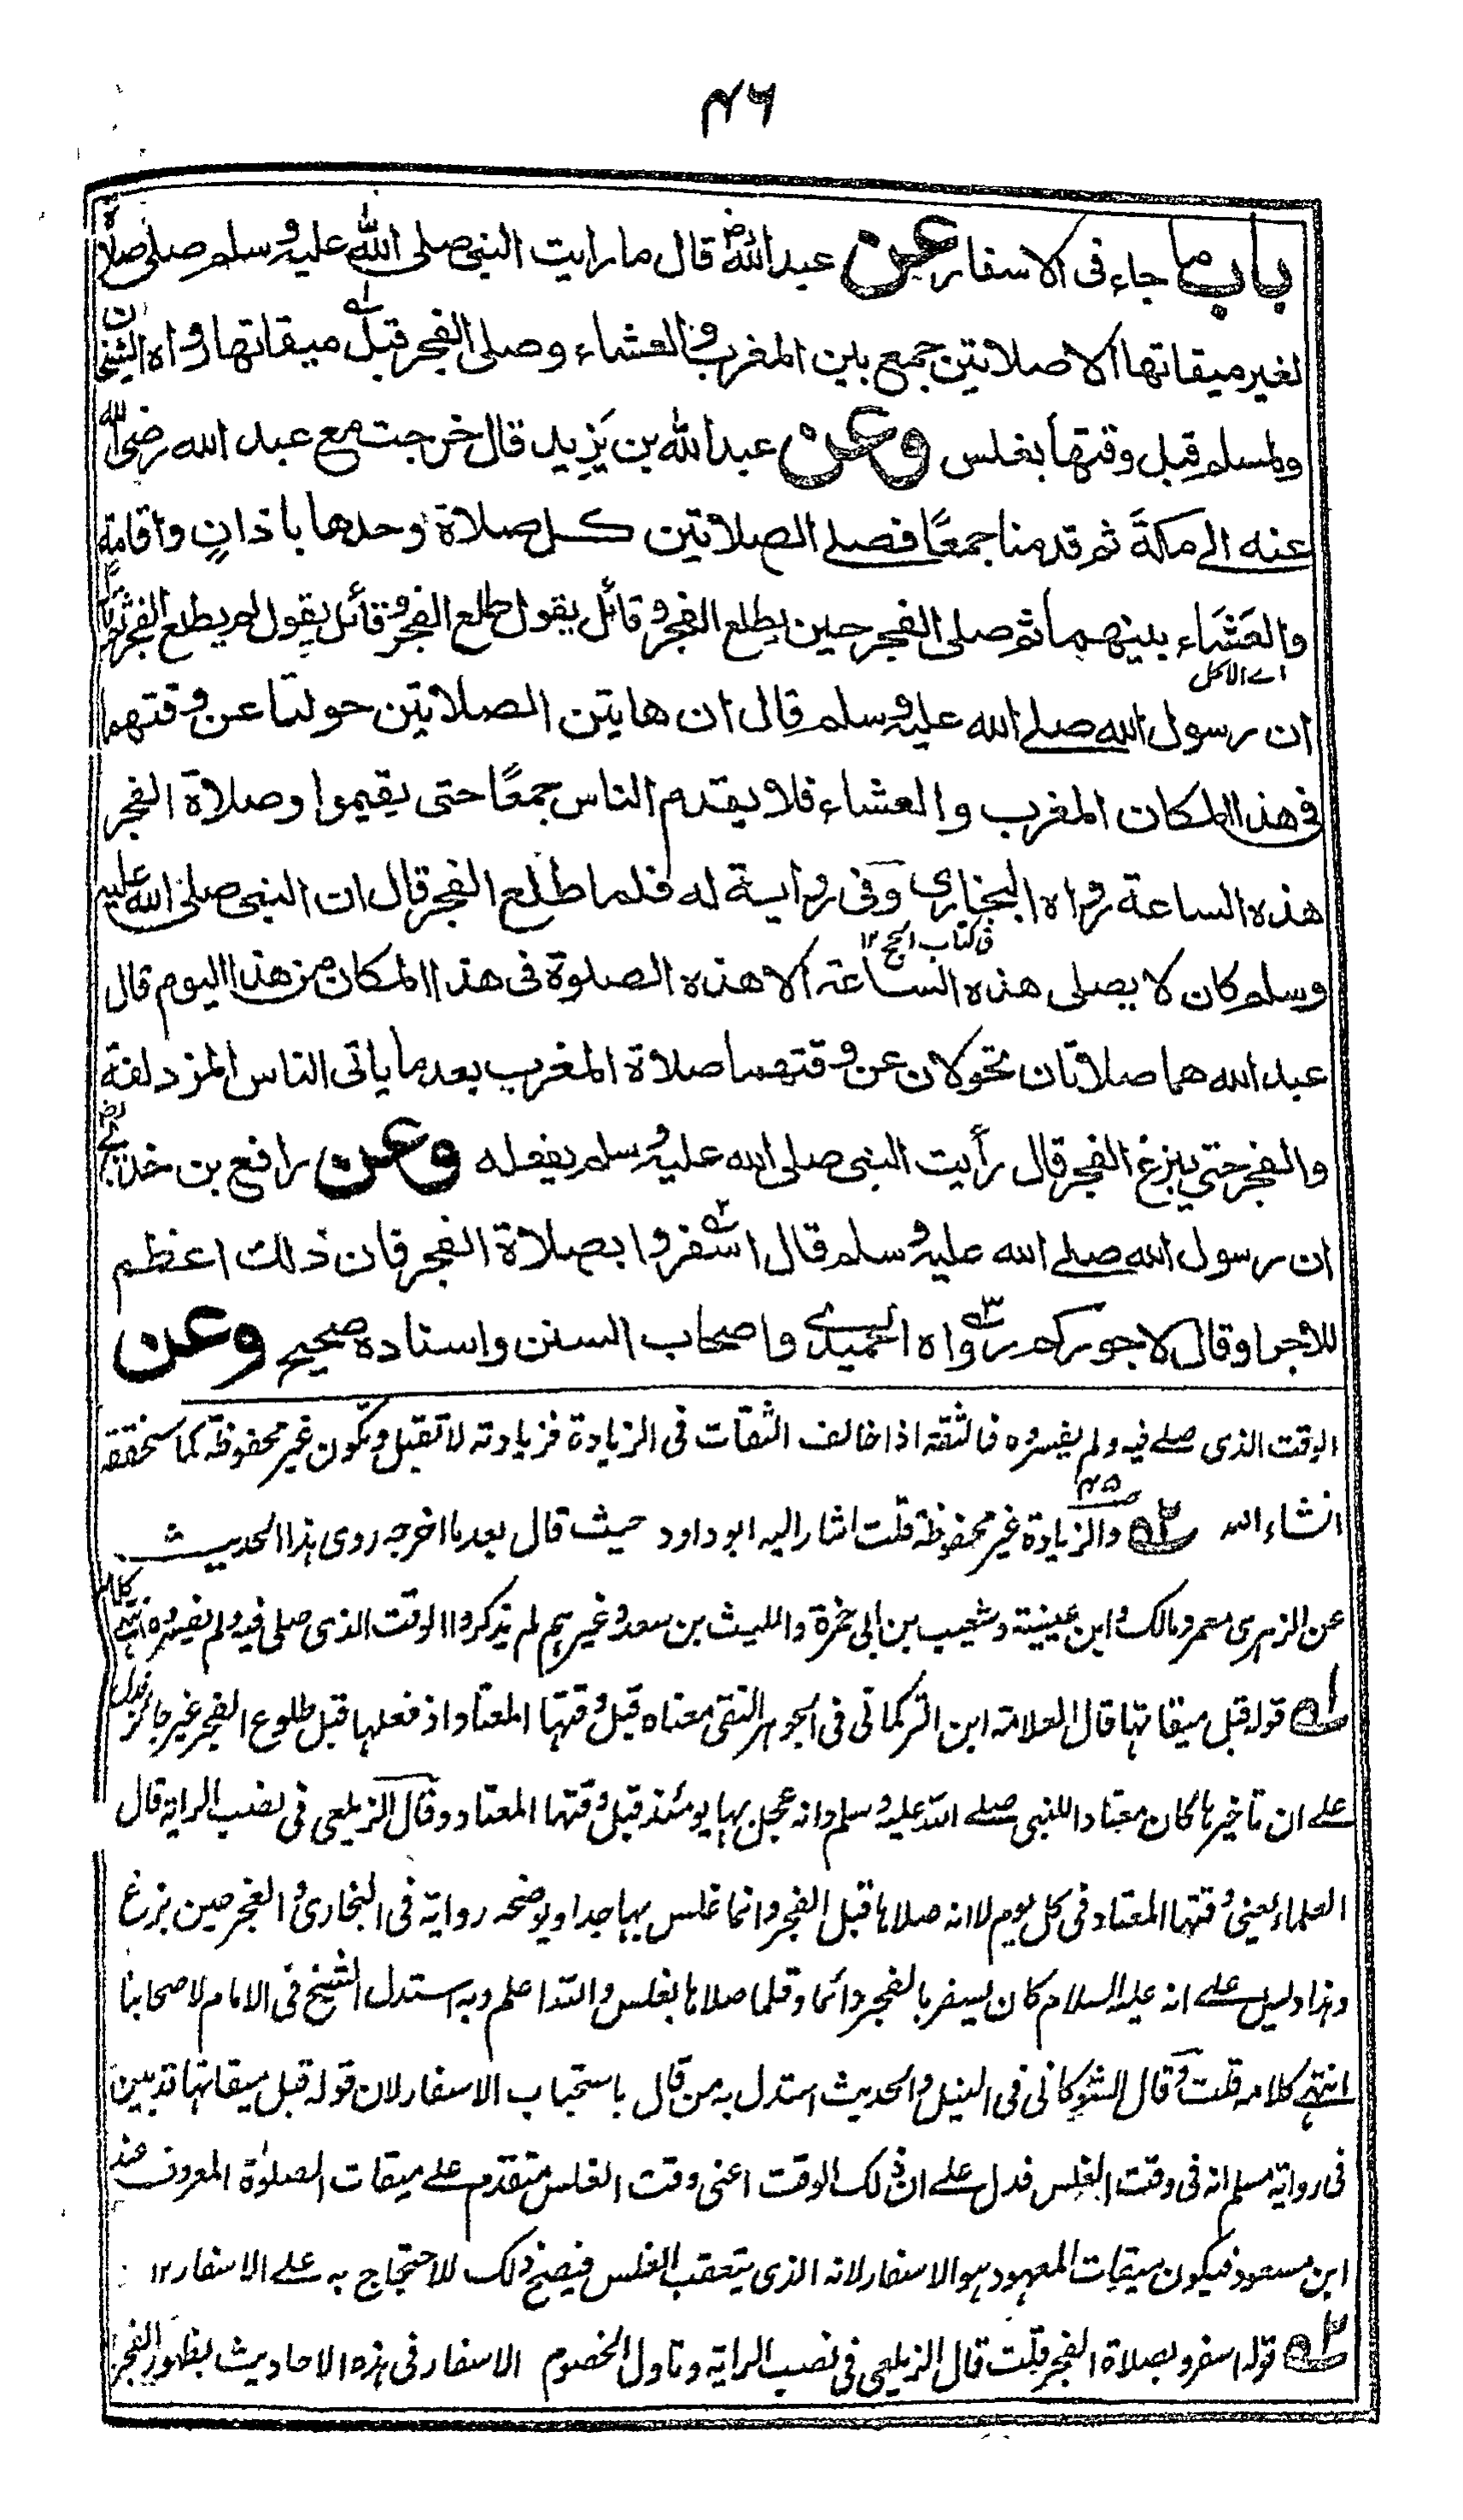 ۴۶
باب ما جاء فى الاسفار عن عبد الله رض قال ما رايت النبى صلى الله عليه وسلم صلى صلاة
لغير ميقاتها الا صلاتين جمع بين المغرب والعشاء وصلى الفجر قبل ۱ ميقاتها رواه الشيخان
ولمسلم قبل وقتها بغلس وعن عبد الله بن يزيد قال خرجت مع عبد الله رضى الله
عنه الى مكة ثم قدمنا جمعًا فصلى الصلاتين كل صلاة وحدها باذانٍ واقامةٍ
والعَشَاء بينهما ثم صلى الفجر حين طلع الفجر وقائل يقول طلع الفجر وقائل يقول لم يطلع الفجر ثم قال
اے الاكل
ان رسول الله صلى الله عليه وسلم قال ان هاتين الصلاتين حولتا عن وقتهما
فى هذا المكان المغرب والعشاء فلا يقدم الناس جمعًا حتى يقيموا وصلاة الفجر
هذه الساعة رواه البخارى وفى رواية له فلما طلع الفجر قال ان النبى صلى الله عليه
فى كتاب الحج ۱۲
وسلم كان لا يصلى هذه الساعة الا هذه الصلوة فى هذا المكان من هذا اليوم قال
عبد الله هما صلاتان تحولان عن وقتهما صلاة المغرب بعد ما ياتى الناس المزدلفة
والفجر حتى يبزغ الفجر قال رأيت النبى صلى الله عليه وسلم يفعله وعن رافع بن خديج رض
ان رسول الله صلى الله عليه وسلم قال ۲ اسفروا بصلاة الفجر فان ذلك اعظم
للاجر او قال لاجوركم ۳ رواه الحميدى واصحاب السنن واسناده صحيح وعن
الوقت الذى صلے فيه ولم يفسروه فالثقة اذا خالف الثقات فى الزيادة فزيادته لا تقبل وتكون غير محفوظة كما سنحققه
انشاء الله ۲ ص۴۵ والزيادة غير محفوظة قلت اشار اليه ابو داود حيث قال بعد ما اخرجه روى هذا الحديث
عن الزهرى معمر ومالك وابن عيينة وشعيب بن ابى حمزة والليث بن سعد وغيرهم لم يذكروا الوقت الذى صلى فيه ولم يفسروه انتهى كلامه
۱ قوله قبل ميقاتها قال العلامة ابن التركمانى فى الجوهر النقى معناه قبل وقتها المعتاد اذ فعلها قبل طلوع الفجر غير جائز فدل
علے ان تاخيرها كان معتادا للنبى صلے الله عليه وسلم وانه عجل بها يومئذ قبل وقتها المعتاد وقال الزيلعى فى نصب الراية قال
العلماء يعنى وقتها المعتاد فى كل يوم لا انه صلاها قبل الفجر وانما غلس بها جدا ويوضحه رواية فى البخارى والفجر حين بزغ
وهذا دليل علے انه عليه السلام كان يسفر بالفجر دائما وقلما صلاها بغلس والله اعلم وبه استدل الشيخ فى الامام لاصحابنا
انتهے كلامه قلت وقال الشوكانى فى النيل والحديث استدل به من قال باستحباب الاسفار لان قوله قبل ميقاتها قد بين
فى رواية مسلم انه فى وقت الغلس فدل علے ان ذلك الوقت اعنى وقت الغلس متقدم علے ميقات الصلوة المعروف عند
ابن مسعود فيكون ميقات المعهود هو الاسفار لانه الذى يتعقب الغلس فيصح ذلك للاحتجاج به علے الاسفار ۱۲
۲ قوله اسفروا بصلاة الفجر قلت قال الزيلعى فى نصب الراية وتاول الخصوم الاسفار فى هذه الاحاديث بظهور الفجر